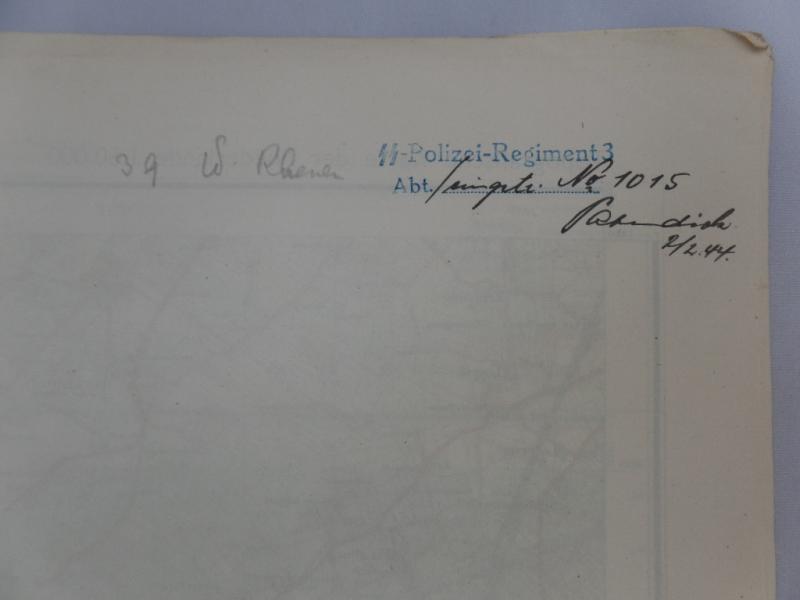 39 W. Rhenen
SS-Polizei-Regiment 3
Abt. No 1015
2/2.44.